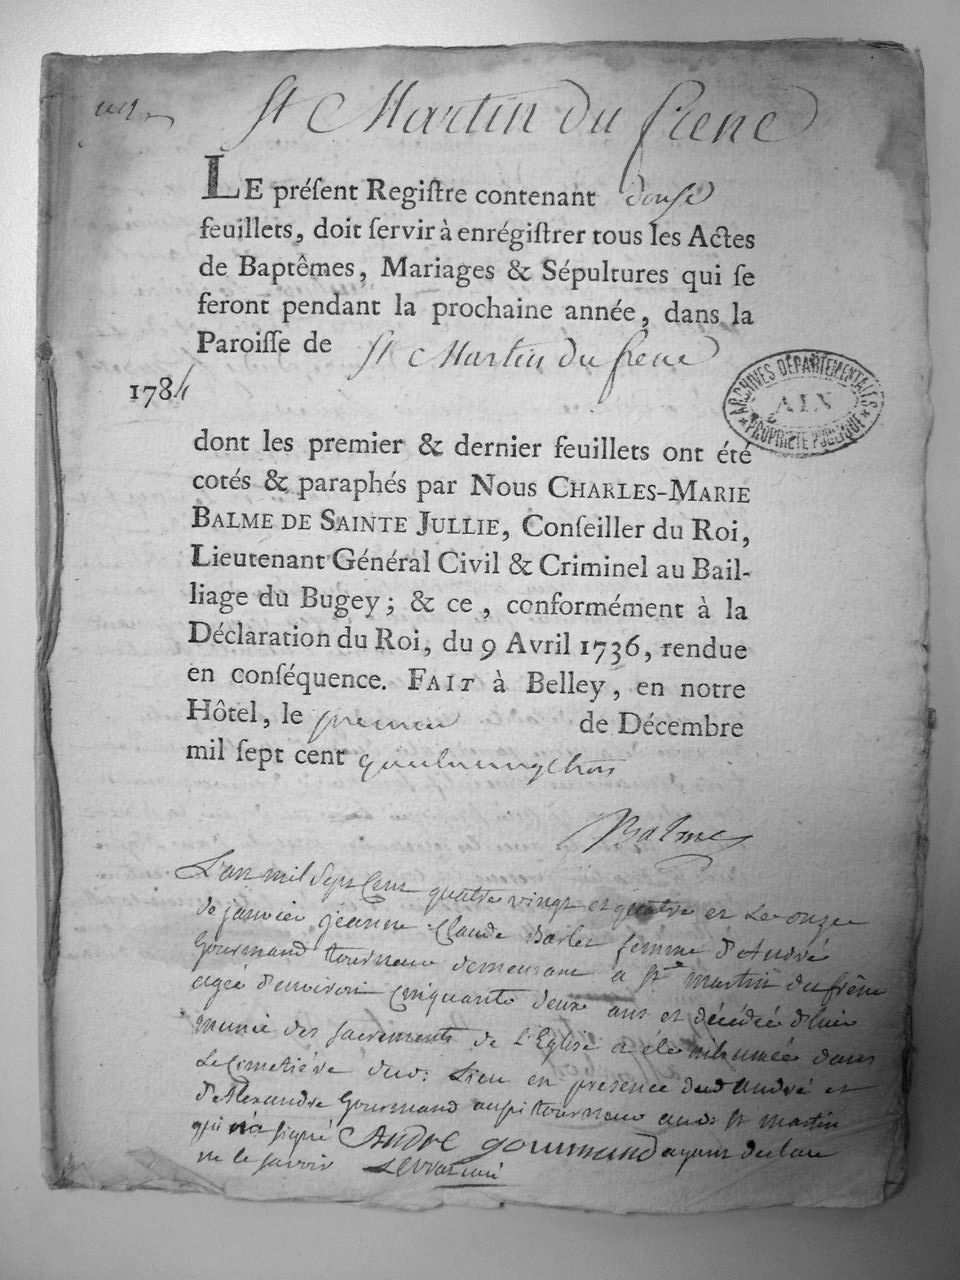 St Martin du frene
LE préſent Regiſtre contenant douse
feuillets, doit ſervir à enrégiſtrer tous les Actes
de Baptêmes, Mariages & Sépultures qui ſe
feront pendant la prochaine année, dans la
Paroiſſe de St Martin du frene
1784
ARCHIVES DÉPARTEMENTALES
AIN
PROPRIÉTÉ PUBLIQUE
dont les premier & dernier feuillets ont été
cotés & paraphés par Nous CHARLES-MARIE
BALME DE SAINTE JULLIE, Conſeiller du Roi,
Lieutenant Général Civil & Criminel au Bail-
liage du Bugey; & ce, conformément à la
Déclaration du Roi, du 9 Avril 1736, rendue
en conſéquence. FAIT à Belley, en notre
Hôtel, le premier de Décembre
mil ſept cent quatrevingttrois
Balme
L'an mil Sept Cent quatre vingt et quatre et Le onze
de janvier jeanne Claude Barlet femme d'André
Gourmand tourneur demeurant a St martin du frêne
agée d'environ Cinquante deux ans et décédée d'hier
munie des sacrements de l'Eglise a été inhumée dans
Le Cimetière dud: Lieu en presence dud André et
d'Alexandre Gourmand aussi tourneur aud: St martin
qui n'a signé André gourmand ayant declaré
ne le savoir